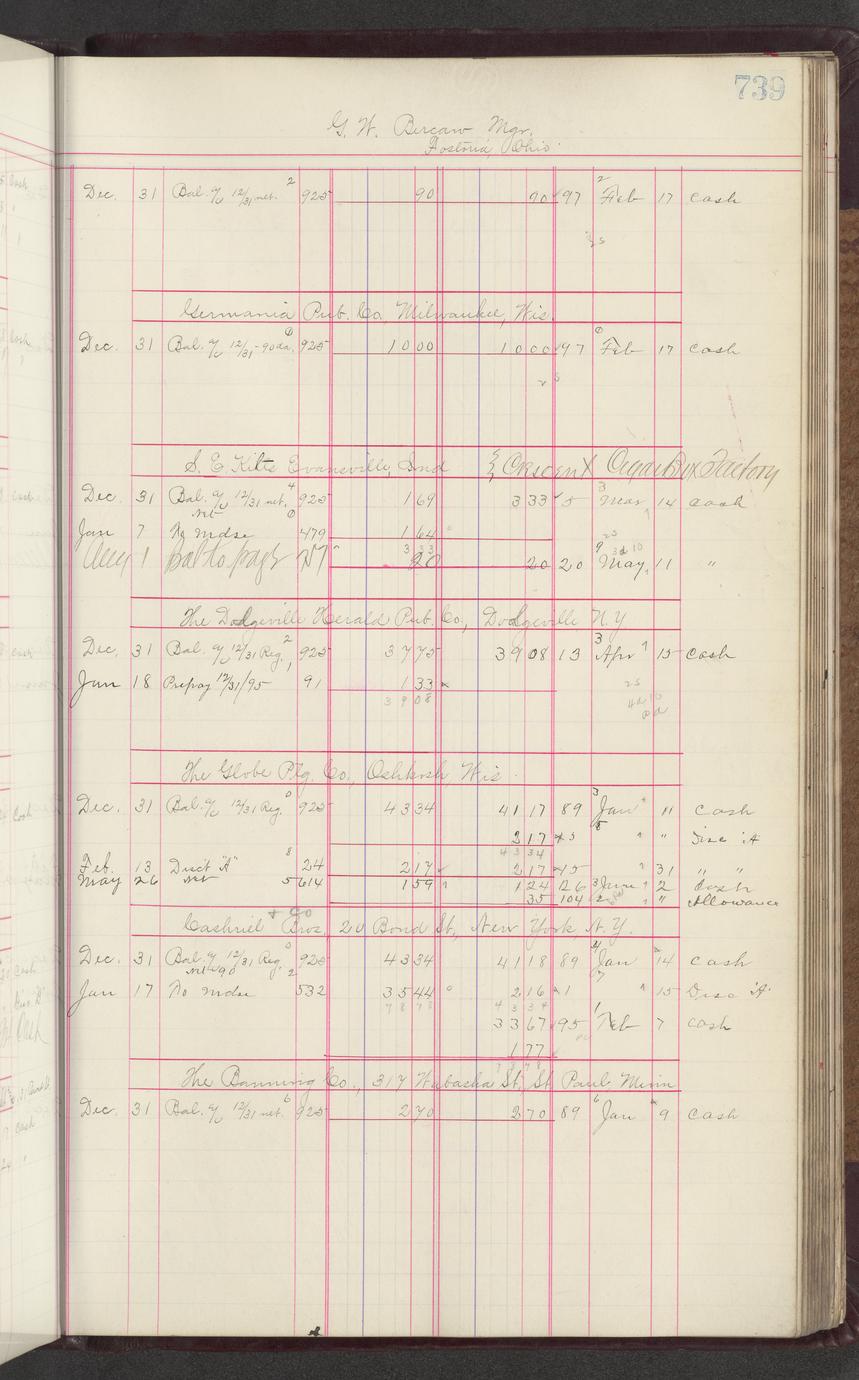 739
G. W. Bercaw Mgr.
Fostoria, Ohio
Dec. 31 Bal. a/c 12/31 net. 2 925 90 90 97 2 Feb 17 cash
Germania Pub. Co. Milwaukee, Wis.
Dec. 31 Bal. a/c 12/31 - 90 da. 925 10 00 10 00 97 Feb 17 cash
S. E. Kilts Evansville, Ind Crescent Cigar Box Factory
Dec. 31 Bal. a/c 12/31 net. 4 925 1 69 3 33 5 3 Mar 14 cash
Net
Jan 7 To mdse 479 1 64
3 33
Aug 1 20 20 20 9 May 11 "
The Dodgeville Herald Pub. Co., Dodgeville N.Y
Dec. 31 Bal. a/c 12/31 Reg. 2 925 37 75 39 08 13 3 Apr 15 cash
Jan 18 Prepay 12/31/95 91 1 33
39 08
The Globe Ptg. Co., Oshkosh, Wis.
Dec. 31 Bal. a/c 12/31 Reg. 925 43 34 41 17 89 3 Jan 11 cash
2 17 " " Disc "A"
43 34
Feb. 13 Disct "A" 8 24 2 17 2 17 45 31 " "
May 26 Net 5 614 1 59 1 24 126 3 June 2 Cash
35 104 2 " Allowance
Cashriel Bros. & Co, 20 Bond St., New York, N.Y.
Dec. 31 Bal. a/c 12/31 Reg. 925 43 34 41 18 89 4 Jan 14 cash
Net 90 2
Jan 17 To mdse 532 35 44 2 16 1 15 Disc "A"
78 78 43 34
33 67 95 1 Feb 7 cash
1 77
78 78
The Banning Co., 317 Wabasha St, St Paul Minn
Dec. 31 Bal. a/c 12/31 net. 6 925 2 70 2 70 89 6 Jan 9 cash